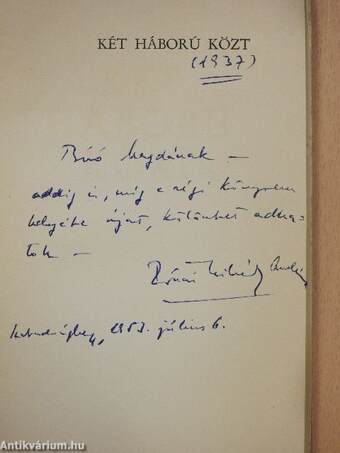 KÉT HÁBORÚ KÖZT
(1937)
Bíró Magdának —
addig is, míg a régi könyvem
helyébe újat, különbet adha-
tok —
Rónai Mihály András
Szabadsághegy, 1953. július 6.
Antikvárium.hu